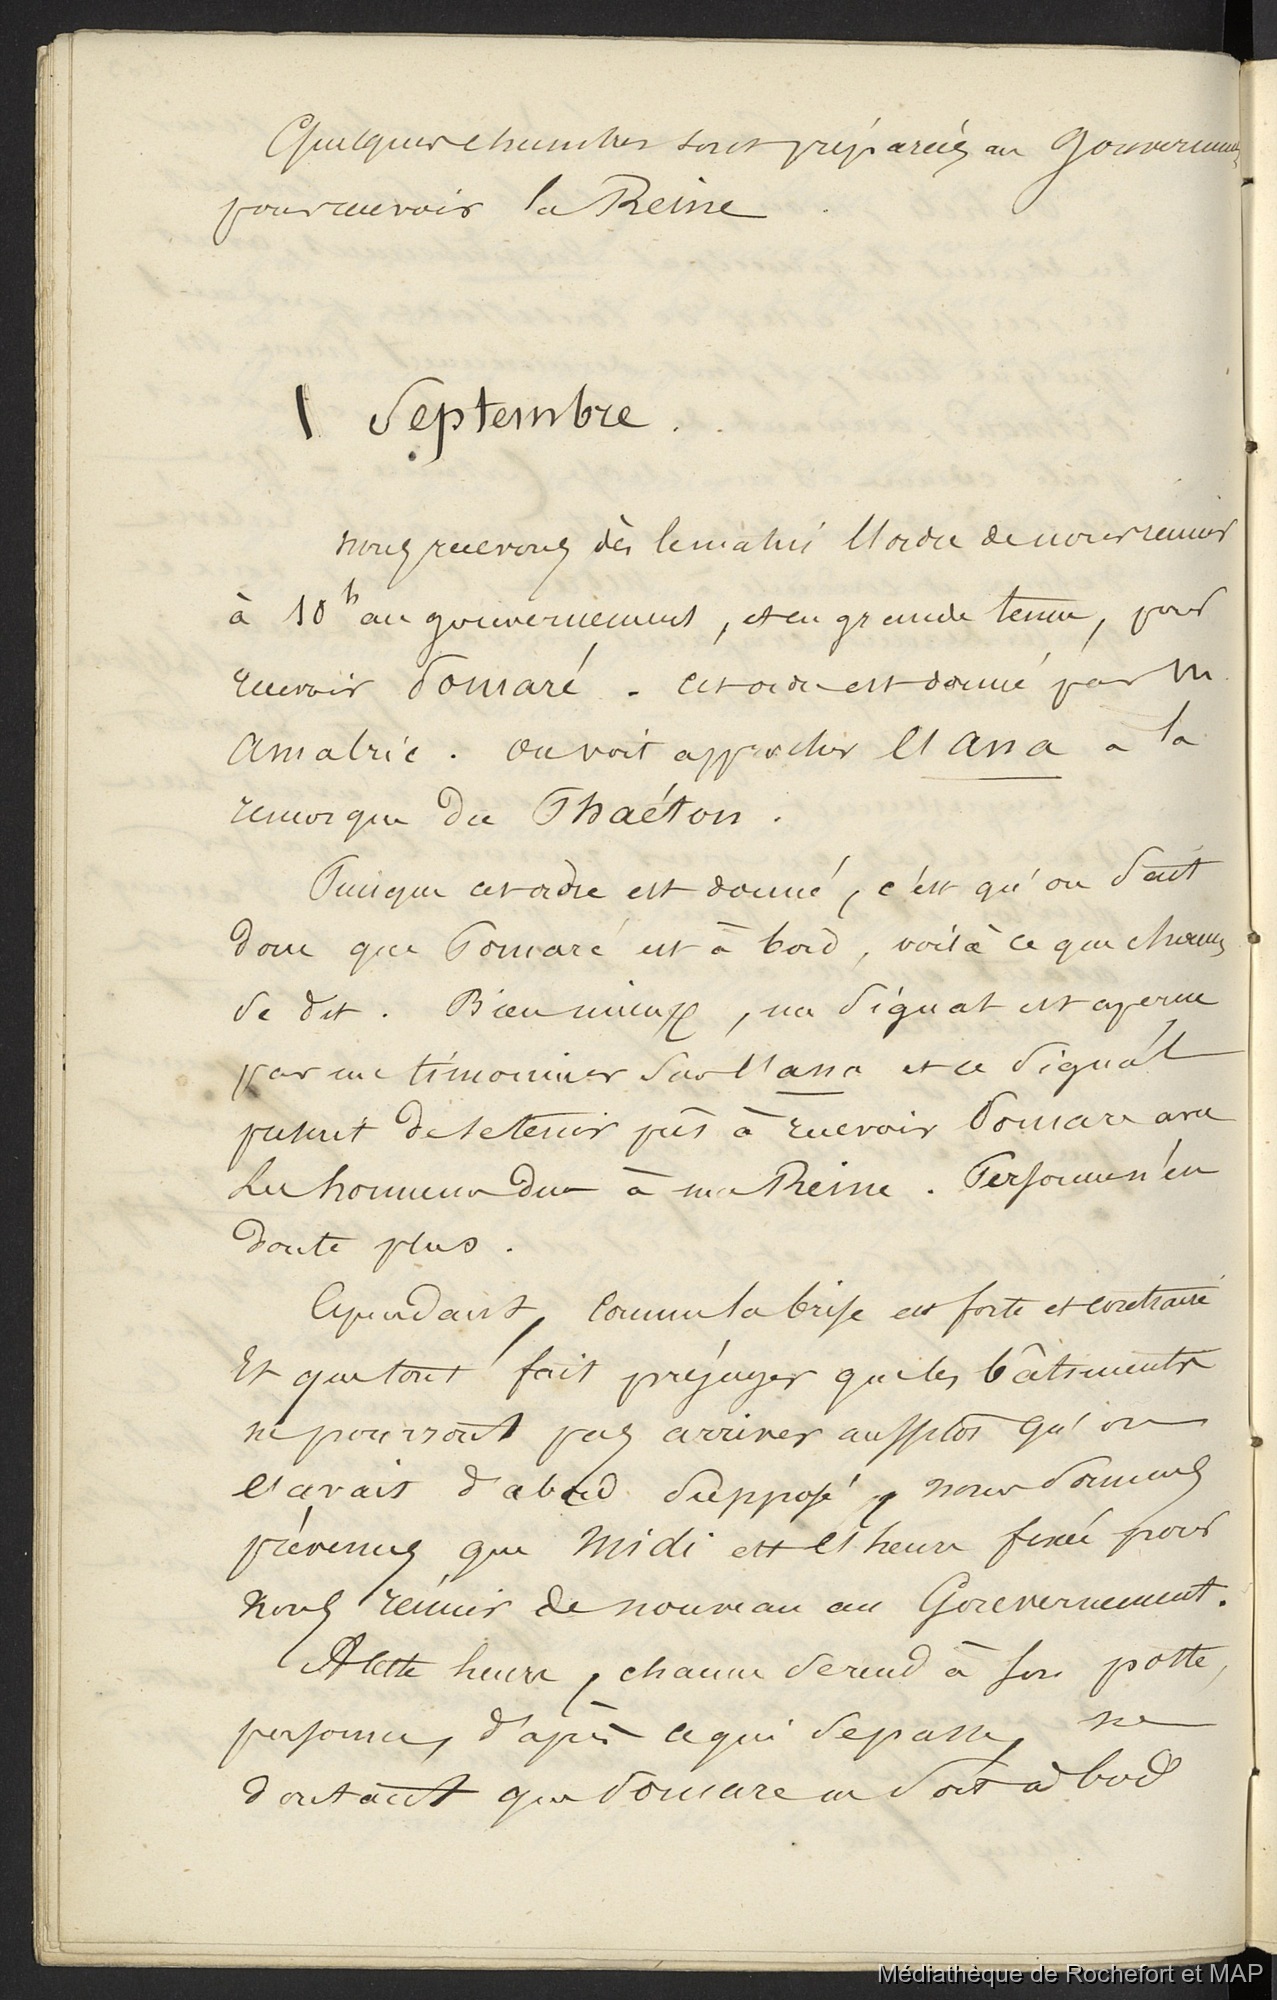 Quelques chambres sont préparées au Gouvernement
pour recevoir la Reine
1 Septembre.
nous recevons dès le matin l'ordre de nous réunir
à 10h au gouvernement, et en grande tenue, pour
recevoir Pomaré. Cet ordre est donné par M.
Amalric. On voit approcher l'Ana à la
remorque du Phaéton.
Puisque cet ordre est donné, c'est qu'on sait
donc que Pomaré est à bord, voilà ce que chacun
se dit. Bien mieux, un signal est aperçu
par un timonier sur l'ana et ce signal
prescrit de se tenir prêt à recevoir Pomare avec
les honneurs dus à une Reine. Personne n'en
doute plus.
Cependant, comme la brise est forte et contraire
Et que tout fait préjuger que les bâtiments
ne pourront pas arriver aussitôt qu'on
l'avait d'abord supposé, nous sommes
prévenus que Midi est l'heure fixée pour
nous réunir de nouveau au Gouvernement.
A cette heure, chacun se rend à son poste,
personne, d'après ce qui se passe, ne
doutant que Pomare ne soit à bord
Médiathèque de Rochefort et MAP